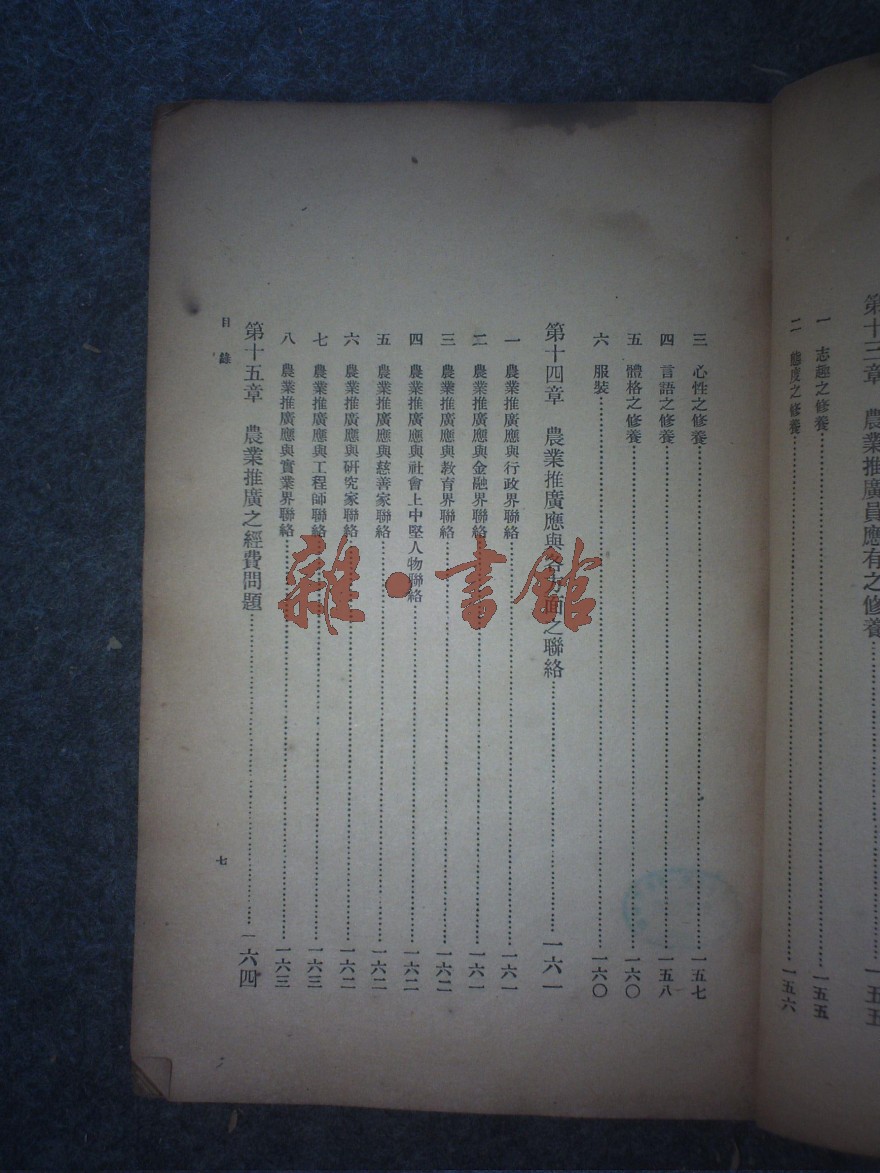 第十三章 農業推廣員應有之修養……一五五
一 志趣之修養……一五五
二 態度之修養……一五六
三 心性之修養……一五七
四 言語之修養……一五八
五 體格之修養……一六〇
六 服裝……一六〇
第十四章 農業推廣應與各方面之聯絡……一六一
一 農業推廣應與行政界聯絡……一六一
二 農業推廣應與金融界聯絡……一六一
三 農業推廣應與教育界聯絡……一六二
四 農業推廣應與社會上中堅人物聯絡……一六二
五 農業推廣應與慈善家聯絡……一六二
六 農業推廣應與研究家聯絡……一六二
七 農業推廣應與工程師聯絡……一六三
八 農業推廣應與實業界聯絡……一六三
第十五章 農業推廣之經費問題……一六四
目錄
七
雜·書館